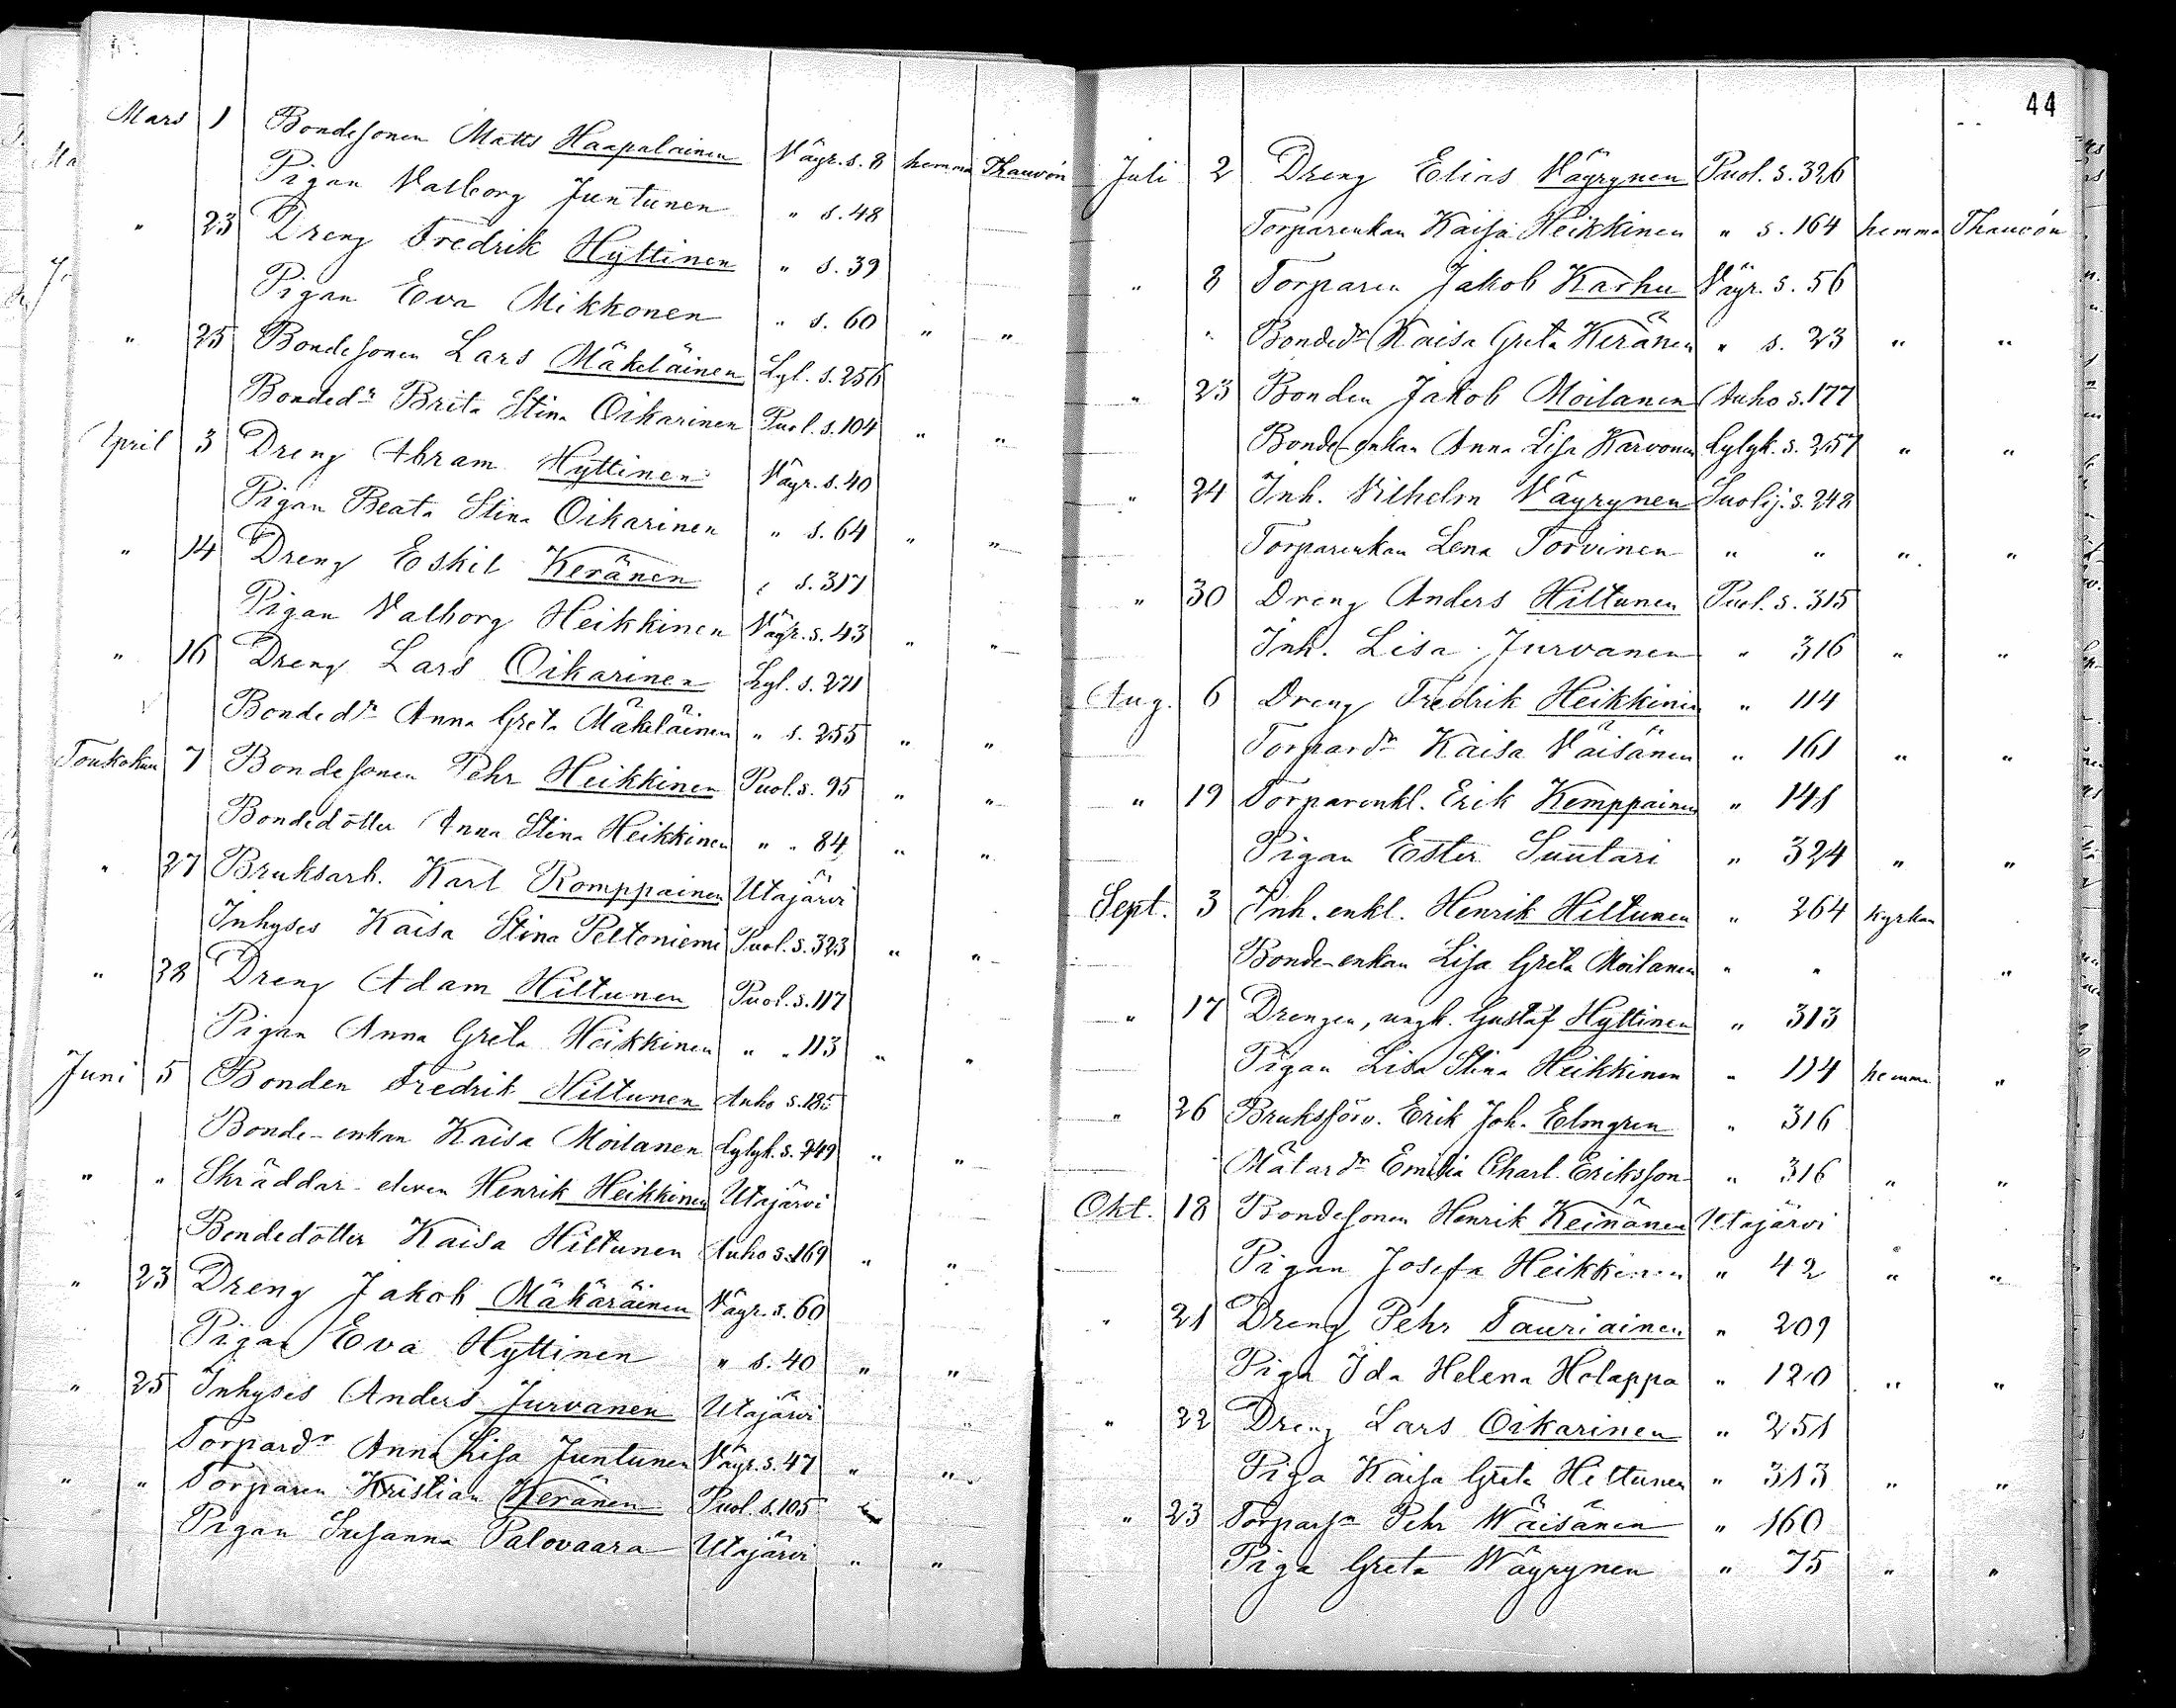 Mars 1 Bondesonen Matts Haapalainen Väyr. s. 8 hemma Thauvón
Pigan Valborg Juntunen " s. 48
" 23 Dreng Fredrik Hyttinen " s. 39
Pigan Eva Mikkonen " s. 60 " "
" 25 Bondesonen Lars Mäkeläinen Lyl. s. 256
Bondedr Brita Stina Oikarinen Puol. s. 104 " "
April 3 Dreng Abram Hyttinen Väyr. s. 40
Pigan Beata Stina Oikarinen " s. 64 " "
" 14 Dreng Eskil Keränen " s. 317
Pigan Valborg Heikkinen Väyr. s. 43 " "
" 16 Dreng Lars Oikarinen Lyl. s. 271
Bondedr Anna Greta Mäkeläinen " s. 255 " "
Toukokuu 7 Bondesonen Pehr Heikkinen Puol. s. 95 " "
Bondedötter Anna Stina Heikkinen " " 84 " "
" 27 Bruksarb. Karl Romppainen Utajärvi
Inhyses Kaisa Stina Peltoniemi Puol. s. 323 " "
" 28 Dreng Adam Hiltunen Puol. s. 117
Pigan Anna Greta Heikkinen " " 113 " "
Juni 5 Bonden Fredrik Hiltunen Auho s. 185
Bonde-enkan Kaisa Moilanen Lylyk. s. 249 " "
" " Skräddar-eleven Henrik Heikkinen Utajärvi
Bondedötter Kaisa Hiltunen Auho s. 169 " "
" 23 Dreng Jakob Mäkäräinen Väyr. s. 60
Pigan Eva Hyttinen " s. 40 " "
" 25 Inhyses Anders Jurvanen Utajärvi
Torpardr Anna Lisa Juntunen Väyr. s. 47 " "
" " Torparen Kristian Keränen Puol. s. 105
Pigan Susanna Palovaara Utajärvi " "
44
Juli 2 Dreng Elias Väyrynen Puol. s. 326
Torparenkan Kaisa Heikkinen " s. 164 hemma Thauvón
" 8 Torparen Jakob Karhu Väyr. s. 56
" Bondedr Kaisa Greta Keränen " s. 23 " "
" 23 Bonden Jakob Moilanen Auho s. 177
Bonde-enkan Anna Lisa Karvonen Lylyk. s. 257 " "
" 24 Inh. Vilhelm Väyrynen Suolij. s. 248
Torparenkan Lena Torvinen " " " "
" 30 Dreng Anders Hiltunen Puol. s. 315
Inh. Lisa Jurvanen " 316 " "
Aug. 6 Dreng Fredrik Heikkinen " 114
Torpardr Kaisa Väisänen " 161 " "
" 19 Torparenkl. Erik Kemppainen " 141
Pigan Ester Suutari " 324 " "
Sept. 3 Inh. enkl. Henrik Hiltunen " 264 kyrkan
Bonde-enkan Lisa Greta Moilanen " " "
" 17 Drengen, ungk. Gustaf Hyttinen " 313
Pigan Lisa Stina Heikkinen " 114 hemma "
" 26 Bruksförv. Erik Joh. Elmgren " 316
Mätardr Emilia Charl. Eriksson " 316 " "
Okt. 18 Bondesonen Henrik Keinänen Utajärvi
Pigan Josefa Heikkinen " 42 " "
" 21 Dreng Pehr Tauriainen " 209
Piga Ida Helena Holappa " 120 " "
" 22 Dreng Lars Oikarinen " 251
Piga Kaisa Greta Hiltunen " 313 " "
" 23 Torparsn Pehr Wäisänen " 160
Piga Greta Wäyrynen " 75 " "